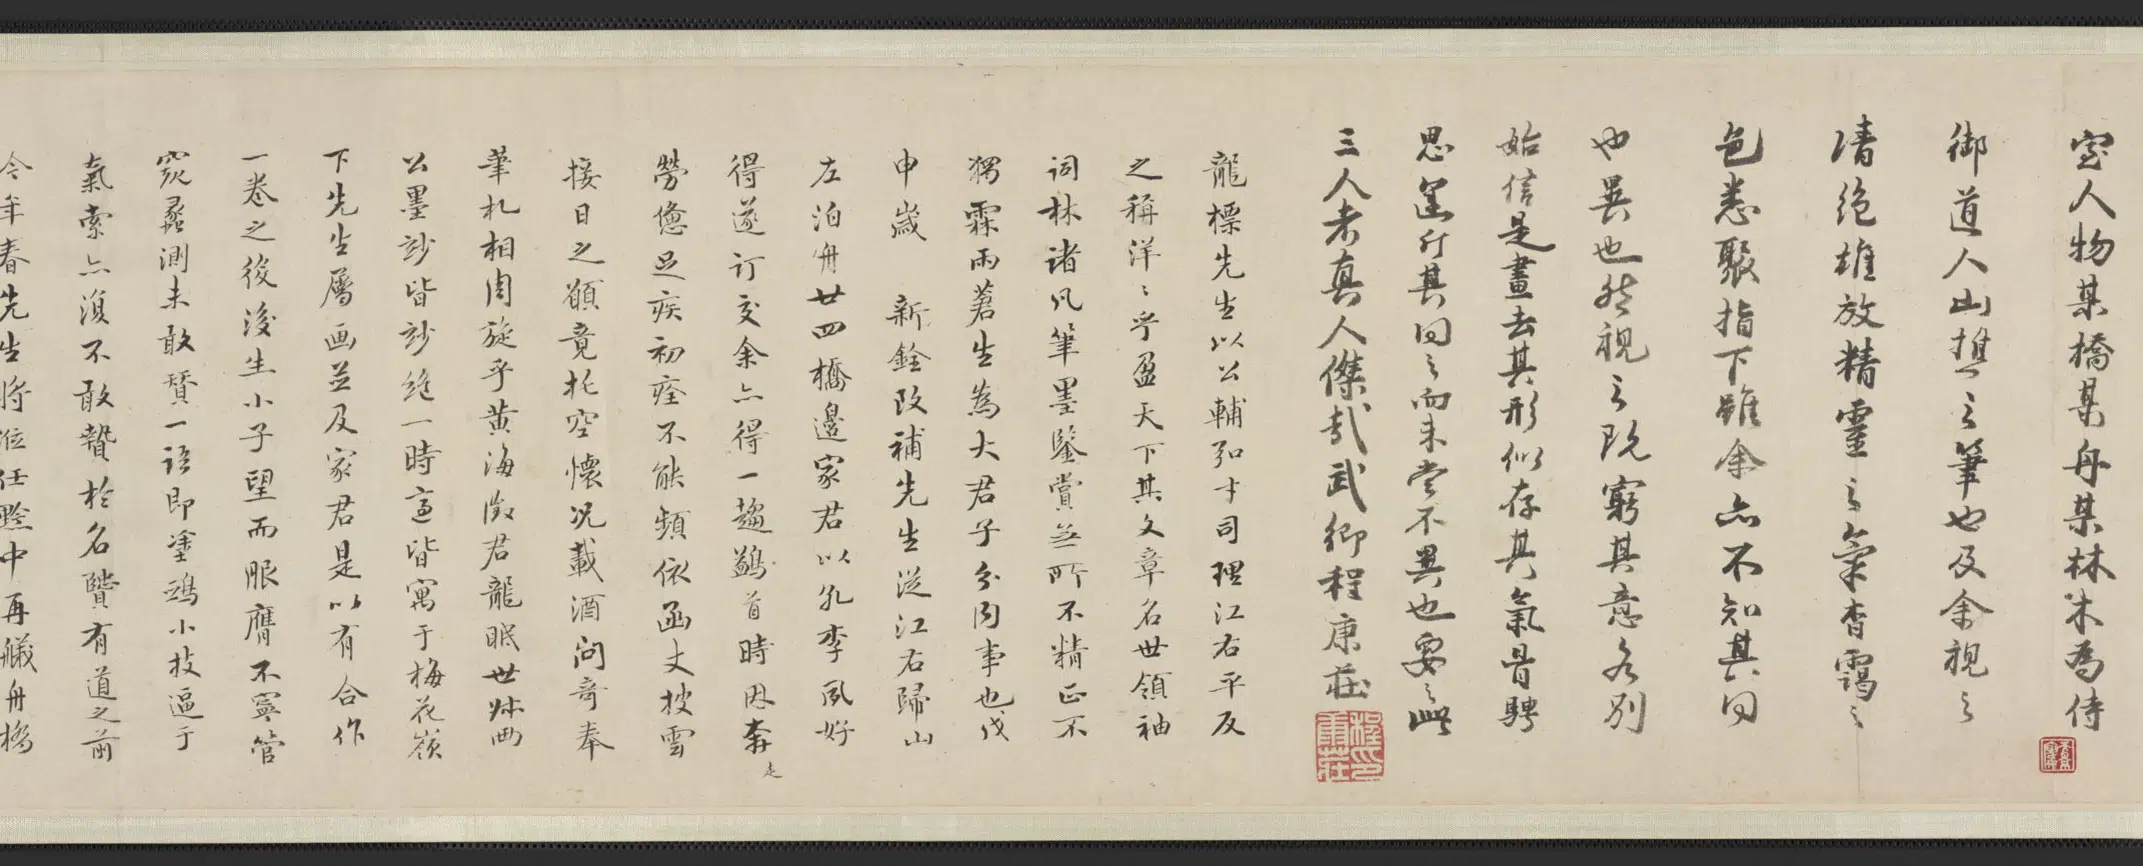 室人物某橋某舟某林木為侍
御道人山樵之筆也及余視之
清絕雄放精靈之氣杳靄之
色悉聚指下雖余亦不知其同
也異也然視之既窮其意各別
始信是畫去其形似存其氣骨騁
思運斤其同之而未嘗不異也要之此
三人者真人傑哉武鄉程康莊
程康莊印
龍標先生以公輔弘才司理江右平反
之稱洋〻乎盈天下其文章名世領袖
詞林諸凡筆墨鑒賞並所不精正不
獨霖雨蒼生為大君子分內事也戊
申歲 新銓改補先生從江右歸山
左泊舟廿四橋邊家君以孔李夙好
得遂訂交余亦得一趨鷁首時因奔走
勞憊足疾初痊不能頻依函丈披雪
接日之願竟托空懷況載酒問奇奉
筆札相周旋乎黃海澂君龍眠世妹兩
公墨妙皆妙絕一時適皆寓于梅花嶺
下先生屬画並及家君是以有合作
一卷之後後生小子望而服膺不寧管
窺蠡測未敢贅一語即塗鴉小技逼于
氣索亦復不敢贄於名賢有道之前
今年春先生將涖任黔中再艤舟橋